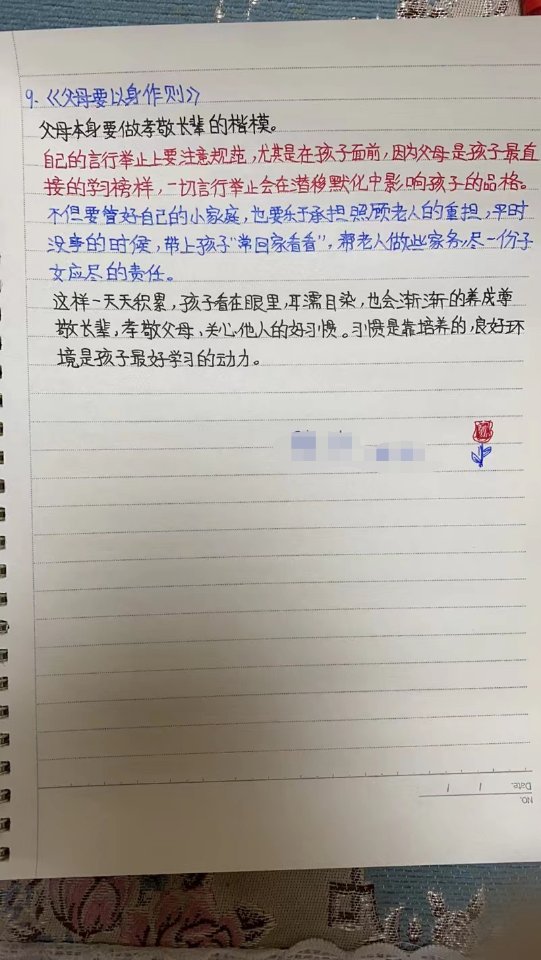 9.《父母要以身作则》
父母本身要做孝敬长辈的楷模。
自己的言行举止上要注意规范,尤其是在孩子面前,因为父母是孩子最直
接的学习榜样,一切言行举止会在潜移默化中影响孩子的品格。
不但要管好自己的小家庭,也要乐于承担照顾老人的重担,平时
没事的时候,带上孩子“常回家看看”,帮老人做些家务,尽一份子
女应尽的责任。
这样一天天积累,孩子看在眼里,耳濡目染,也会渐渐的养成尊
敬长辈,孝敬父母、关心他人的好习惯。习惯是靠培养的,良好环
境是孩子最好学习的动力。
Date. / /
NO.